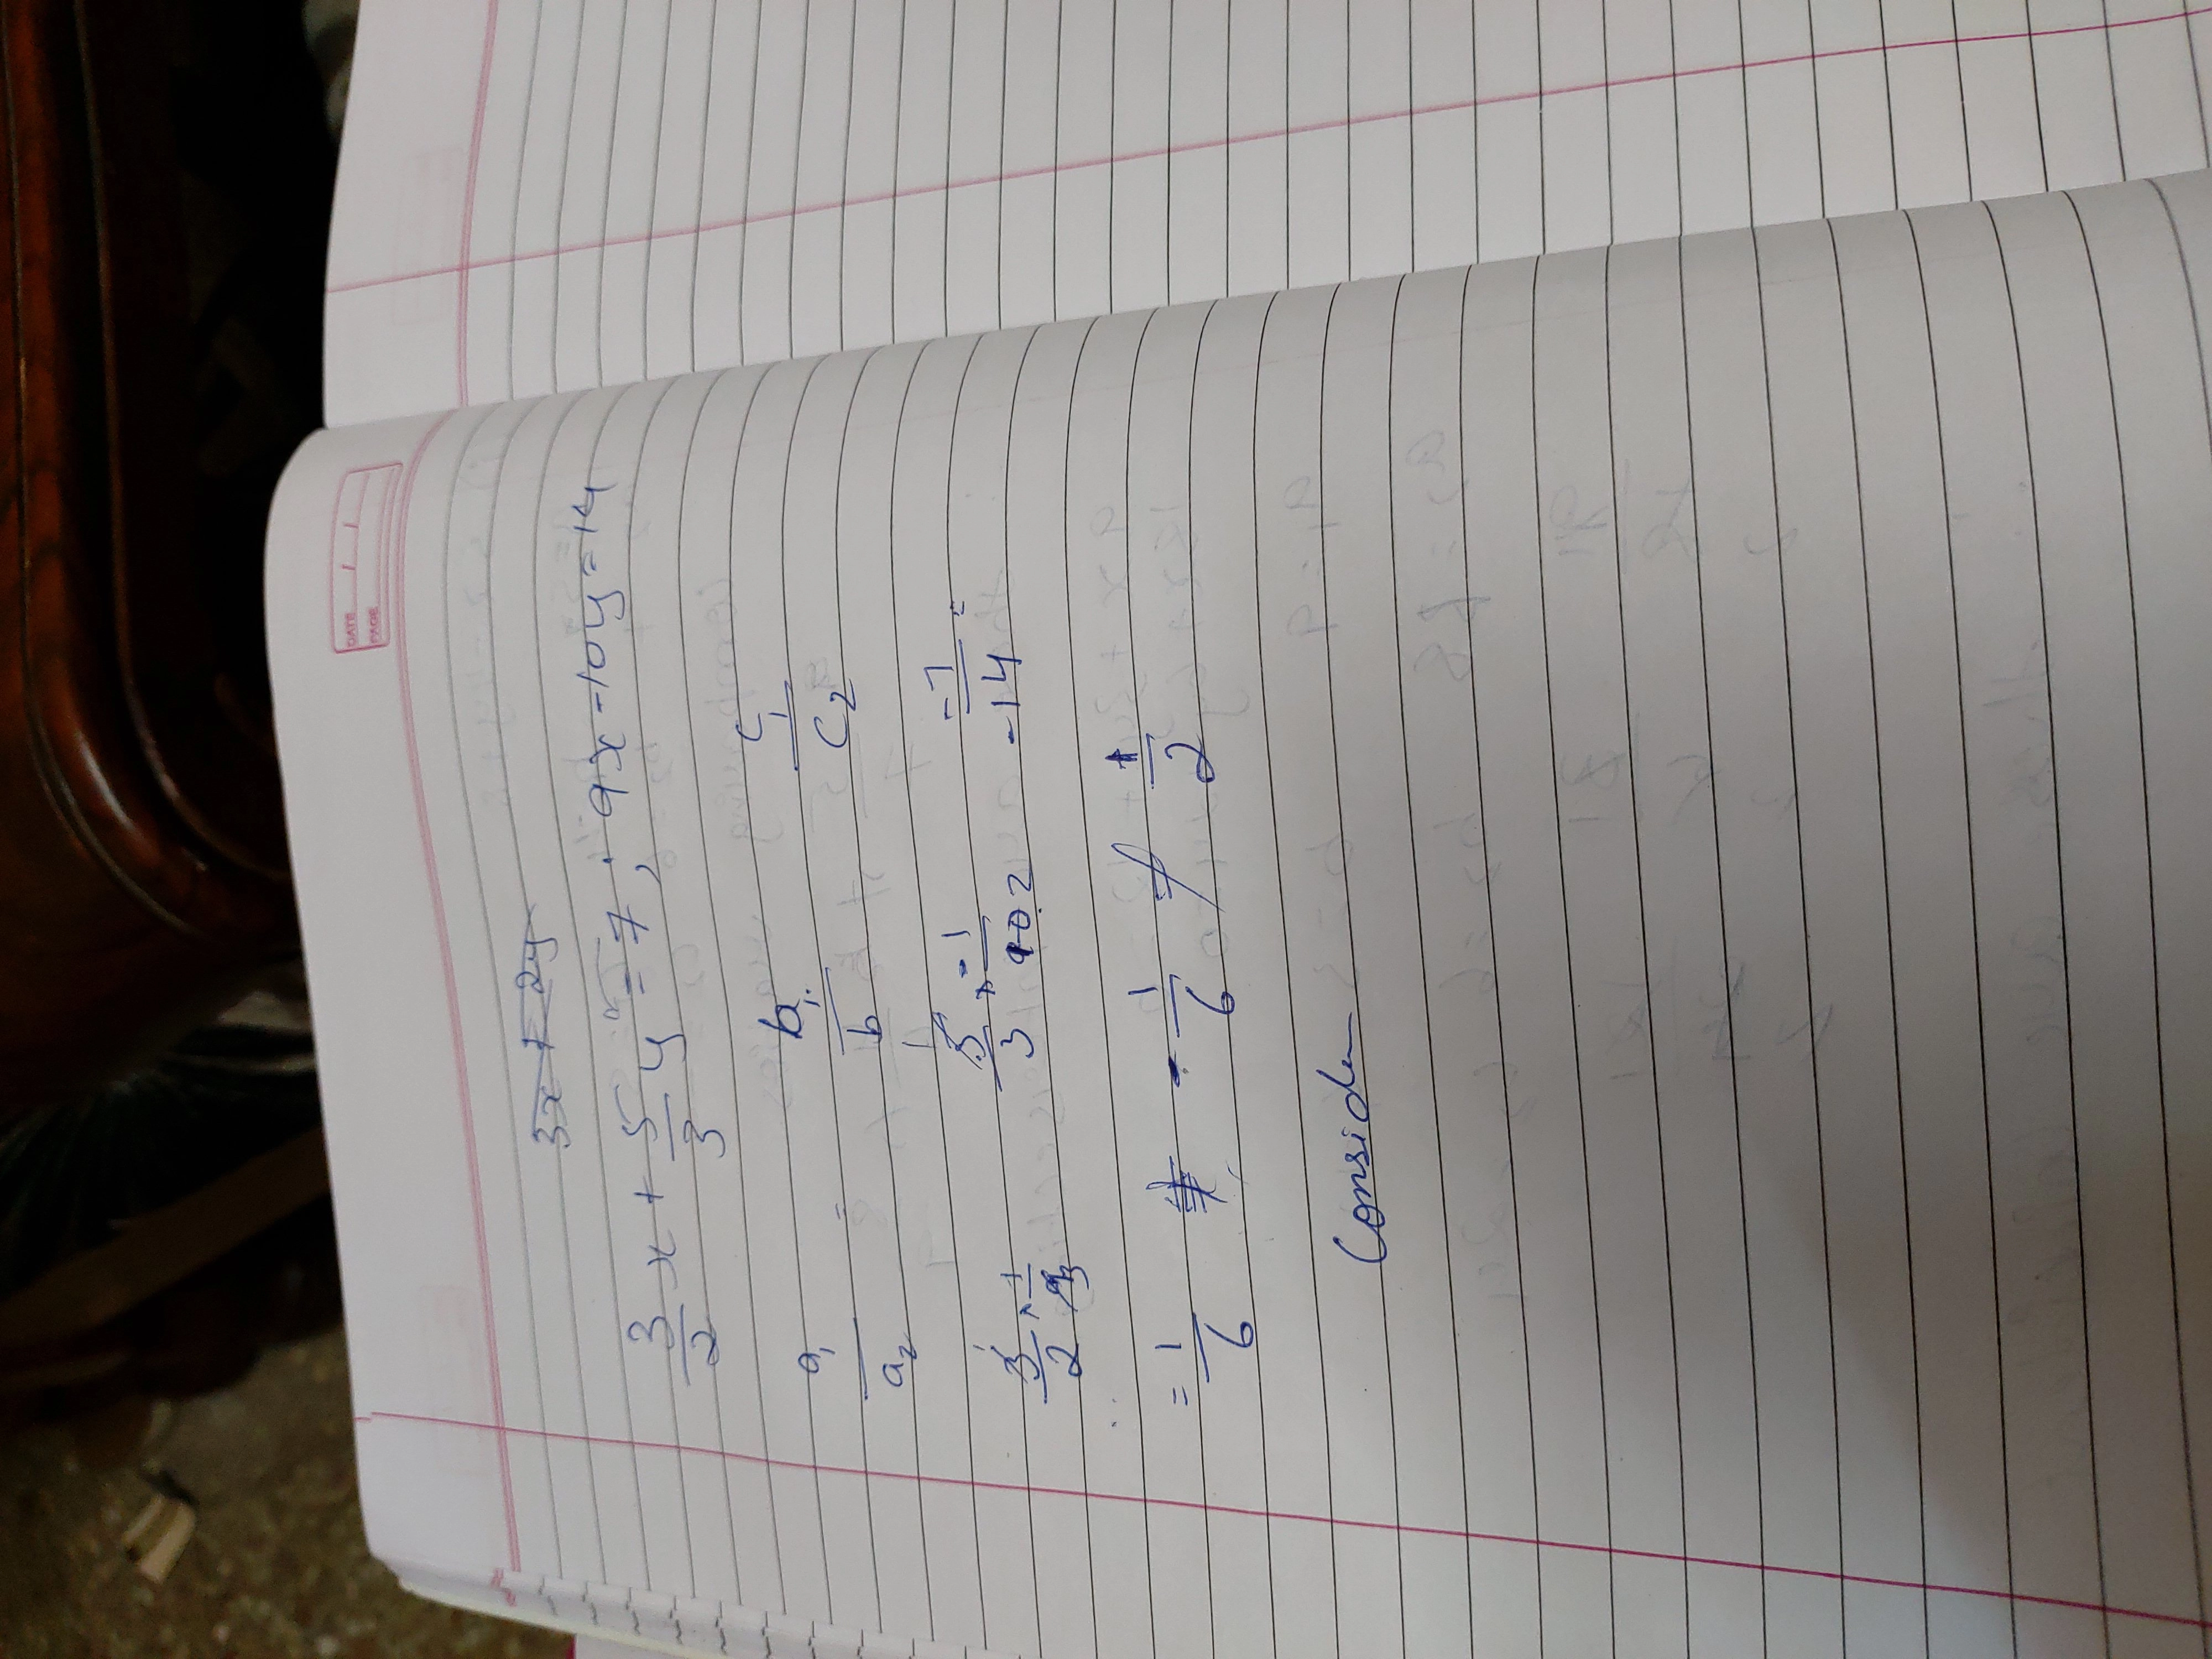 DATE / /
PAGE
3x + 2y
3/2 x + 5/3 y = 7, 9x - 10y = 14
a1/a2 = b1/b c1/c2
3/2 × 1/9 3 5/3 × -1/10 2 -7/-14 =
= 1/6 ≠ -1/6 ≠ 1/2
Consider